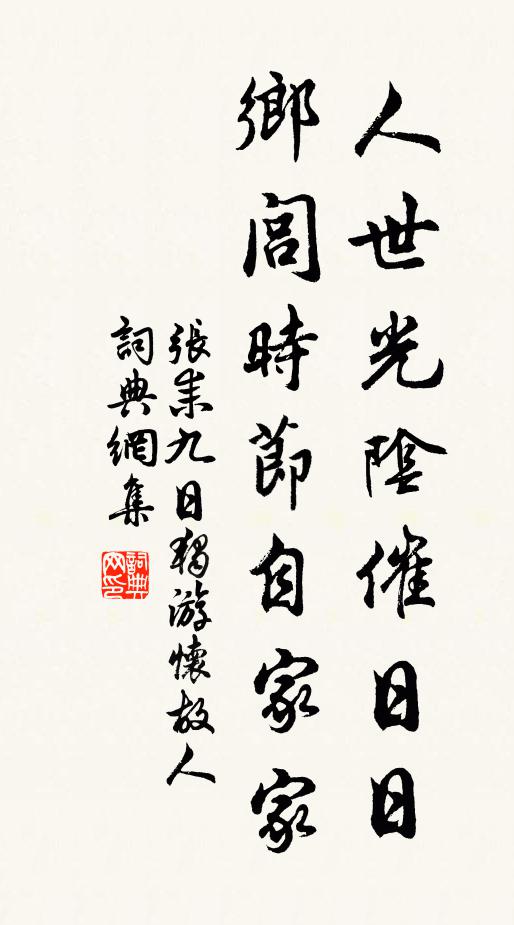 人世光陰催日日
鄉閭時節自家家
張耒九日獨游懷故人
詞典網集
詞典網印